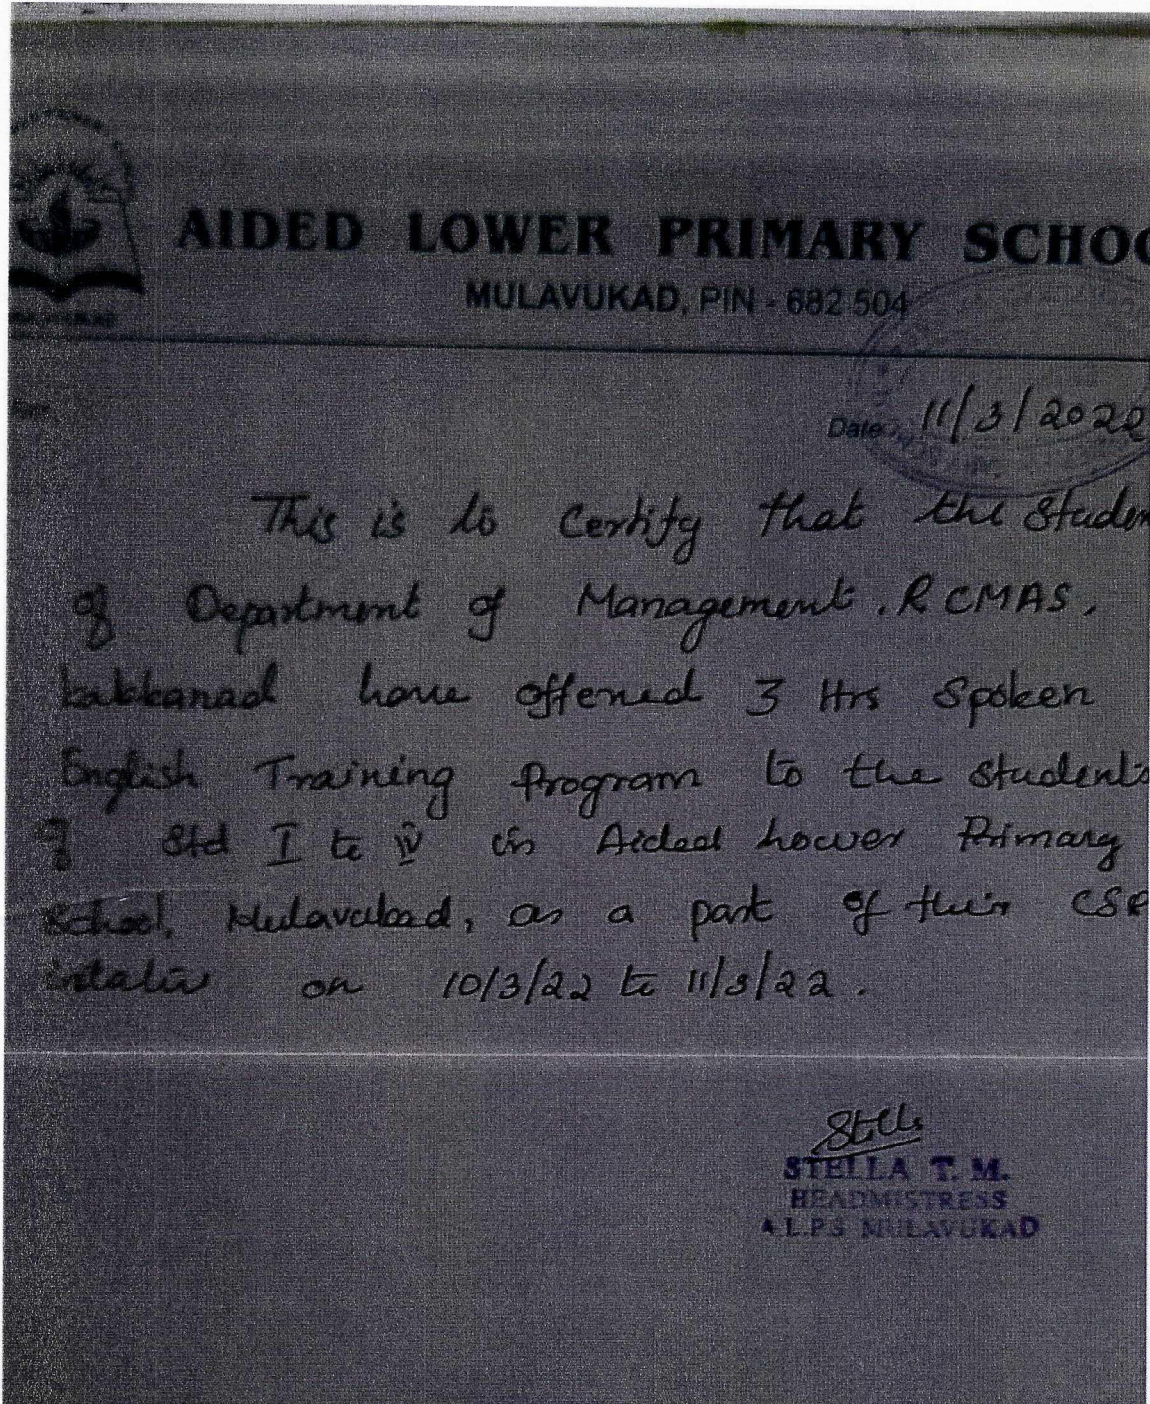 AIDED LOWER PRIMARY SCHOO
MULAVUKAD, PIN - 682 504
Date 11/3/2022
This is to Certify that the Studen
of Department of Management. RCMAS,
kakkanad have offered 3 Hrs Spoken
English Training Program to the students
of Std I to IV in Aided Lower Primary
School, Mulavukad, as a part of their CSR
on 10/3/22 to 11/3/22.
Stella
STELLA T. M.
HEADMISTRESS
A.L.P.S MULAVUKAD